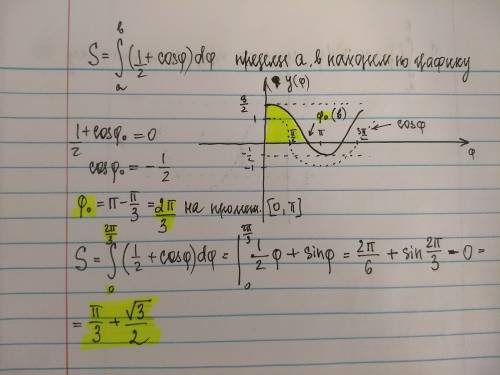 S = ∫ₐᵇ (1/2 + cosφ)dφ пределы a, в находим по графику
y(φ)
3/2
1
-1/2
-1
φ₀ (в)
π/2
π
3π/2
cosφ
φ
1/2 + cosφ₀ = 0
cosφ₀ = -1/2
φ₀ = π - π/3 = 2π/3 на промеж. [0, π]
S = ∫₀^(2π/3) (1/2 + cosφ)dφ = |₀^(2π/3) 1/2 φ + sinφ = 2π/6 + sin 2π/3 - 0 =
= π/3 + √3/2